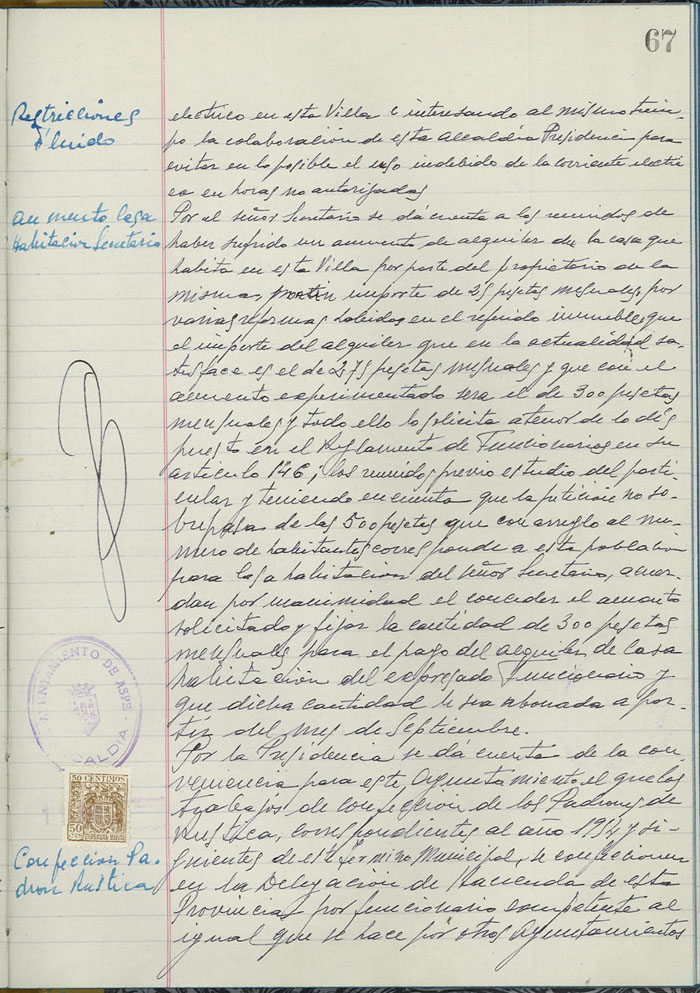 67
Restricciones
fluido
electrico en esta Villa e interesando al mismo tiem-
po la colaboración de esta Alcaldia Presidencia para
evitar en lo posible el uso indebido de la corriente electri
ca en horas no autorizadas
aumento casa
Habitacion Secretario
Por el señor Secretario se dá cuenta a los reunidos de
haber sufrido un aumento de alquiler de la casa que
habita en esta Villa por parte del propietario de la
misma, importe de 25 pesetas mensuales, por
varias reformas habidas en el referido inmueble, que
el importe del alquiler que en la actualidad sa-
tisface es el de 275 pesetas mensuales y que con el
aumento experimentado sera el de 300 pesetas
mensuales y todo ello lo solicita a tenor de lo dis
puesto en el Reglamento de Funcionarios en su
articulo 146; los reunidos previo estudio del parti-
cular y teniendo en cuenta que la peticion no so-
brepasa de las 500 pesetas que con arreglo al nu-
mero de habitantes corresponde a esta poblacion
para casa habitacion del señor Secretario, acuer-
dan por unanimidad el conceder el aumento
solicitado y fijar la cantidad de 300 pesetas
mensuales para el pago del alquiler de casa
habitación del expresado Funcionario y
que dicha cantidad le sea abonada a par-
tir del mes de Septiembre.
AYUNTAMIENTO DE ASPE
ALCALDIA
50 CENTIMOS
50
Confeccion Pa-
dron Rustica
Por la Presidencia se dá cuenta de la con-
veniencia para este Ayuntamiento el que los
trabajos de confeccion de los Padrones de
rustica, correspondientes al año 1954 y si-
guientes de este Termino Municipal, se confeccionen
en la Delegación de Hacienda de esta
Provincia por funcionario competente al
igual que se hace por otros Ayuntamientos